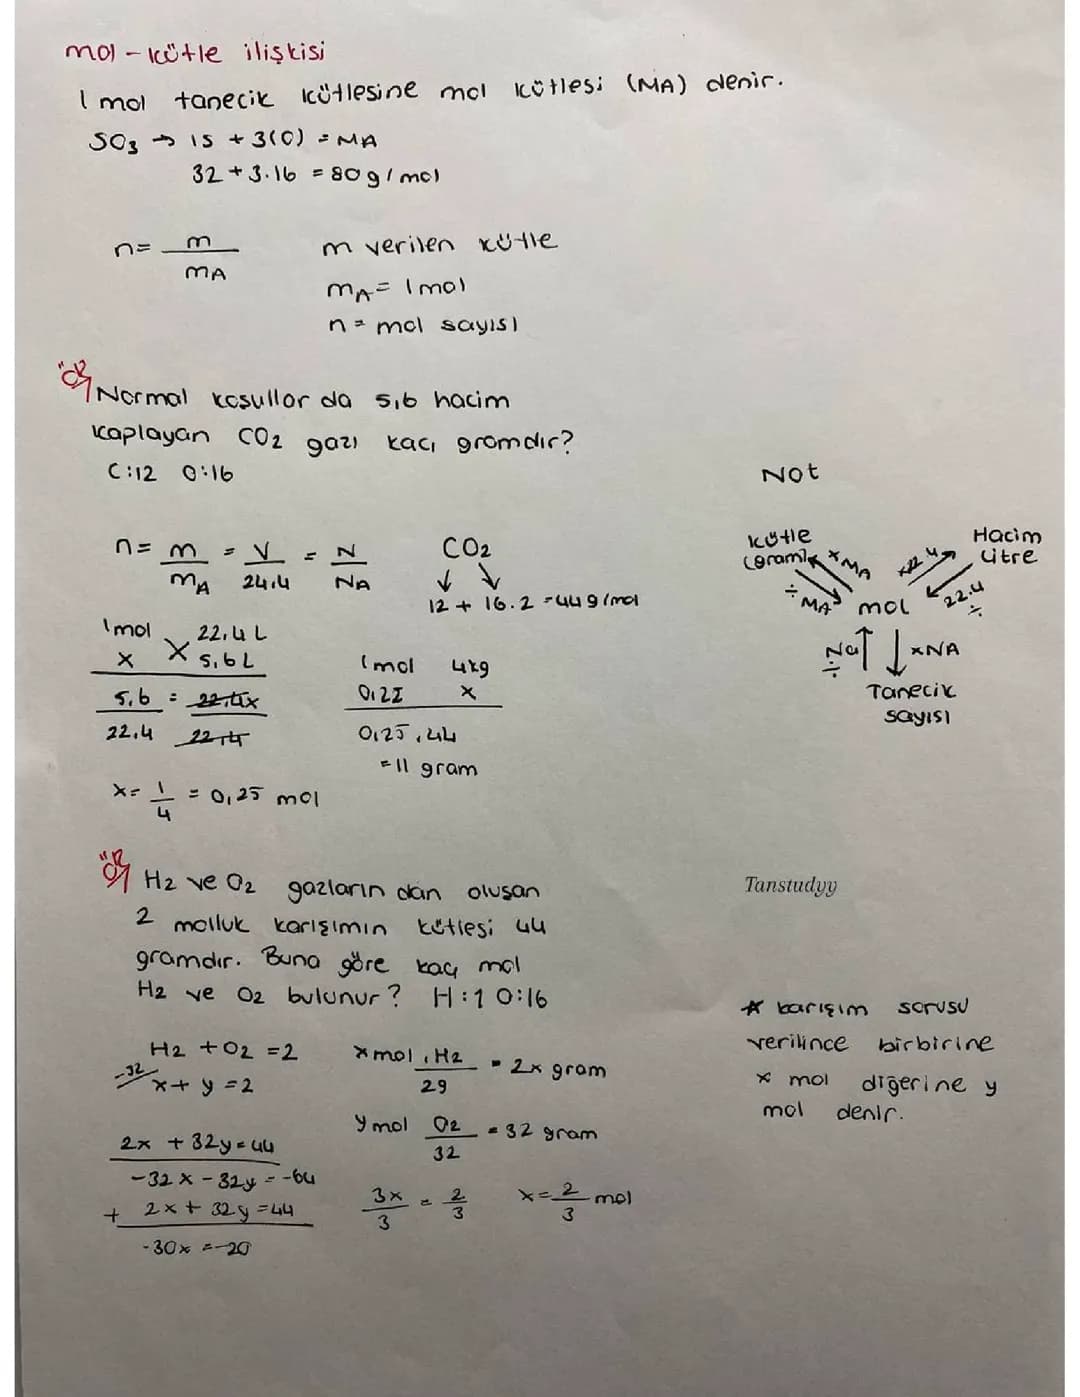 mol - kütle ilişkisi
1 mol tanecik kütlesine mol kütlesi (MA) denir.
SO3 → 1S + 3(O) = MA
32 + 3.16 = 80 g / mol
n = m / MA
m verilen kütle
mA = 1 mol
n = mol sayısı
ÖR
Normal koşullar da 5,6 hacim
kaplayan CO2 gazı kaçı gramdır?
C:12 O:16
n = m / MA = V / 24,4 = N / NA
CO2
12 + 16.2 = 44 g/mol
1mol 22,4 L
x 5,6 L
5,6 = 22,4x
22,4 22,4
x = 1/4 = 0,25 mol
1mol 44g
0,25 x
0,25 . 44
= 11 gram
Not
kütle
(gram)
x MA
÷ MA
mol
x22.4
22.4 ÷
Hacim
Litre
Na ÷
xNA
Tanecik
sayısı
ÖR
H2 ve O2 gazların dan oluşan
2 molluk karışımın kütlesi 44
gramdır. Buna göre kaç mol
H2 ve O2 bulunur? H:1 O:16
H2 + O2 = 2
-32/ x + y = 2
2x + 32y = 44
-32x - 32y = -64
+ 2x + 32y = 44
-30x = -20
x mol . H2 / 29 = 2x gram
y mol O2 / 32 = 32 gram
3x / 3 = 2 / 3
x = 2 / 3 mol
Tanstudyy
* karışım sorusu
verilince birbirine
x mol diğerine y
mol denir.